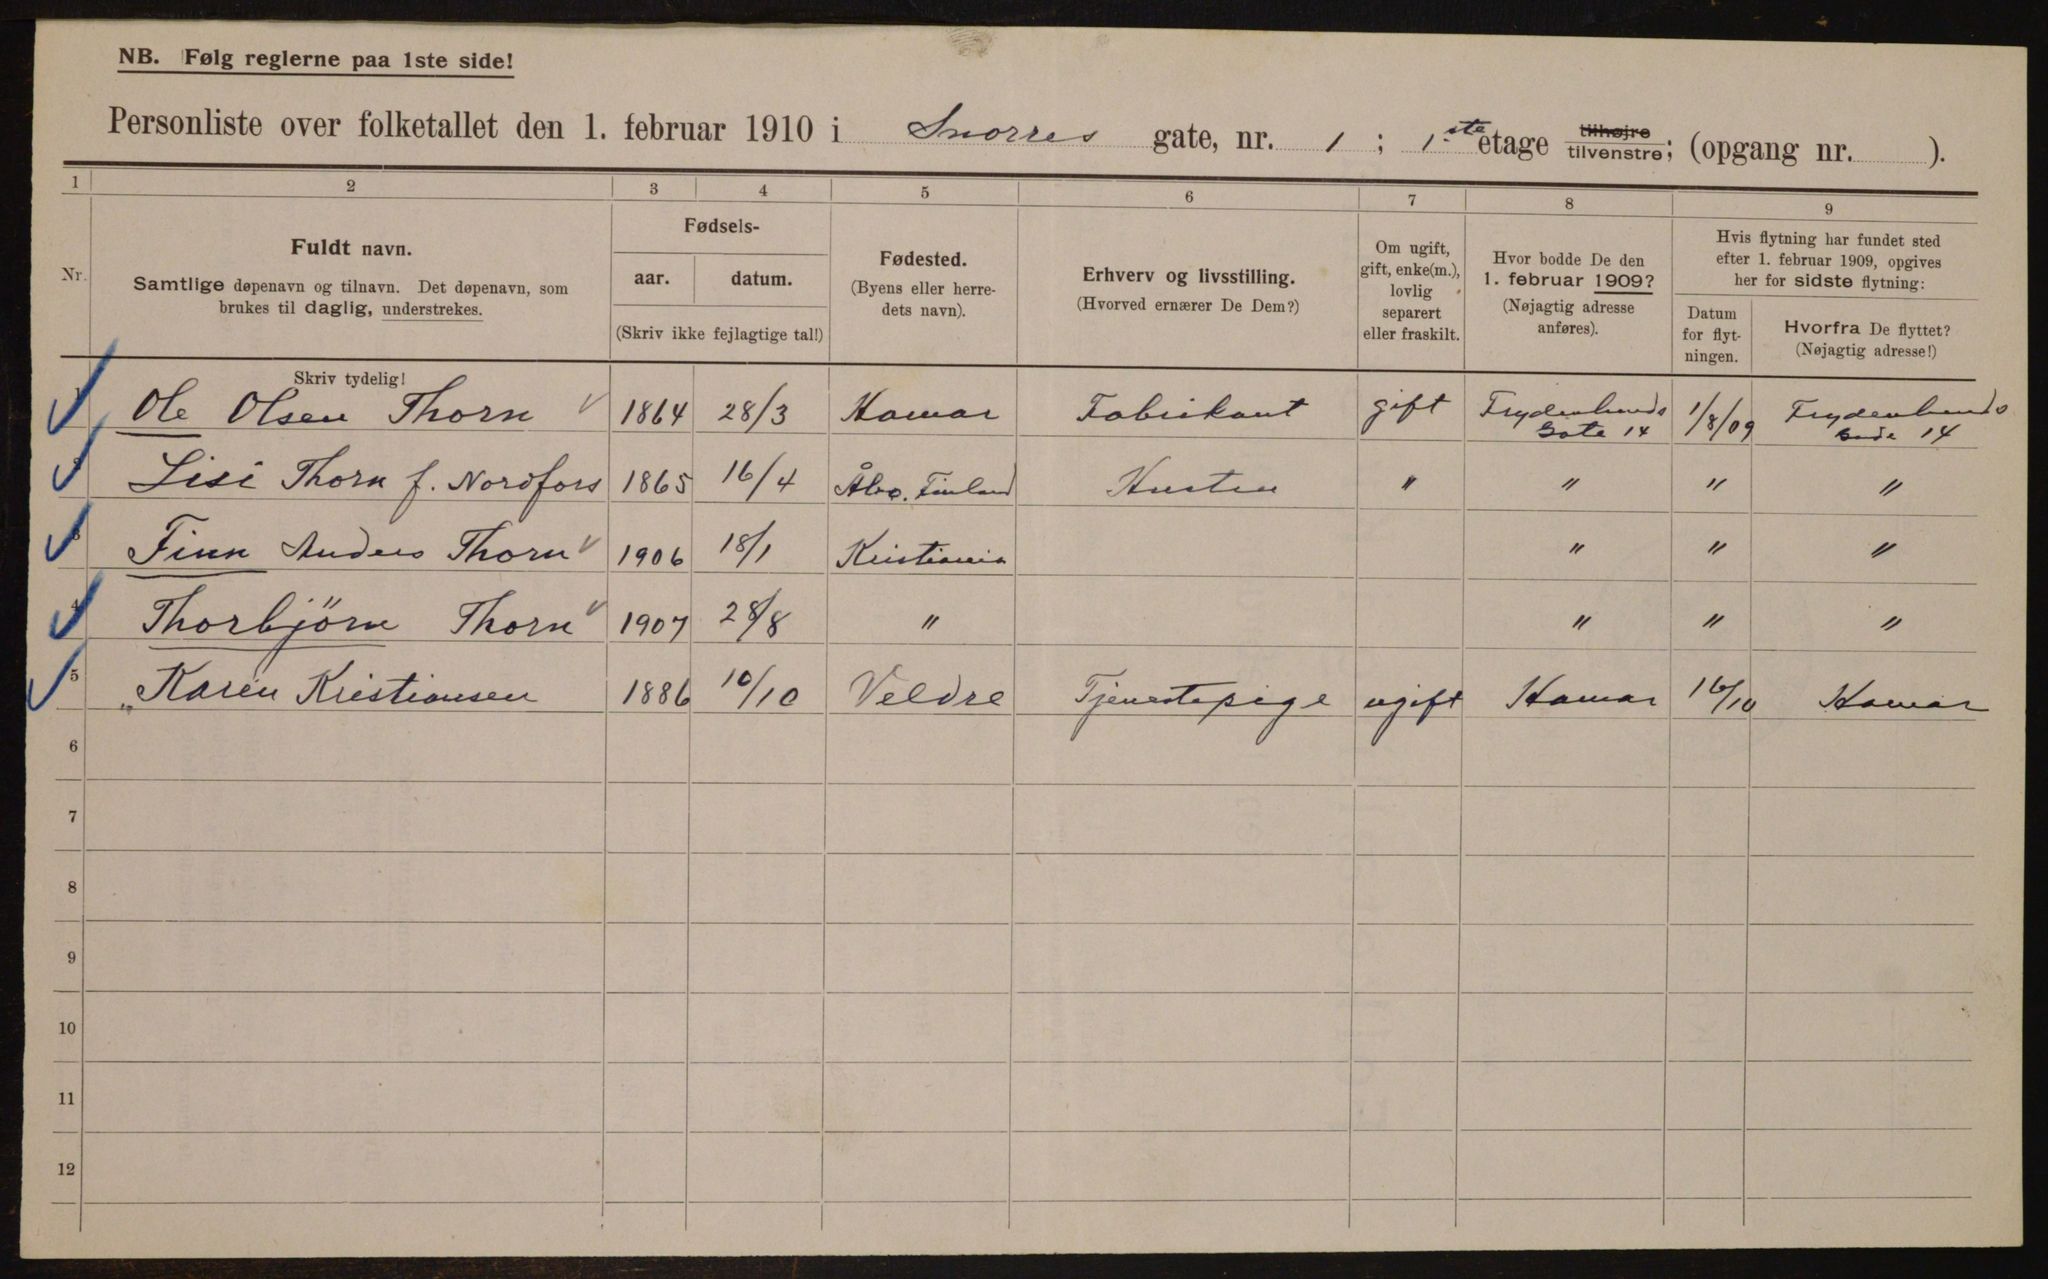 NB. Følg reglerne paa 1ste side!
Personliste over folketallet den 1. februar 1910 i Snorres gate, nr. 1 ; 1.ste etage tilhøjre tilvenstre; (opgang nr. ).
1 2 3 4 5 6 7 8 9
Nr.
Fuldt navn.
Samtlige døpenavn og tilnavn. Det døpenavn, som
brukes til daglig, understrekes.
Skriv tydelig!
Fødsels-
aar. datum.
(Skriv ikke fejlagtige tal!)
Fødested.
(Byens eller herre-
dets navn).
Erhverv og livsstilling.
(Hvorved ernærer De Dem?)
Om ugift,
gift, enke(m.),
lovlig
separert
eller fraskilt.
Hvor bodde De den
1. februar 1909?
(Nøjagtig adresse
anføres).
Hvis flytning har fundet sted
efter 1. februar 1909, opgives
her for sidste flytning:
Datum
for flyt-
ningen.
Hvorfra De flyttet?
(Nøjagtig adresse!)
1 Ole Olsen Thorn 1864 28/3 Hamar Fabrikant gift Frydenlunds Gate 14 1/8/09 Frydenlunds Gade 14
2 Lisi Thorn f. Nordfors 1865 16/4 Åbo. Finland Hustru " " " "
3 Finn Anders Thorn 1906 18/1 Kristiania " " "
4 Thorbjörn Thorn 1907 28/8 " " " "
5 Karen Kristiansen 1886 10/10 Veldre Tjenestepige ugift Hamar 16/10 Hamar
6
7
8
9
10
11
12